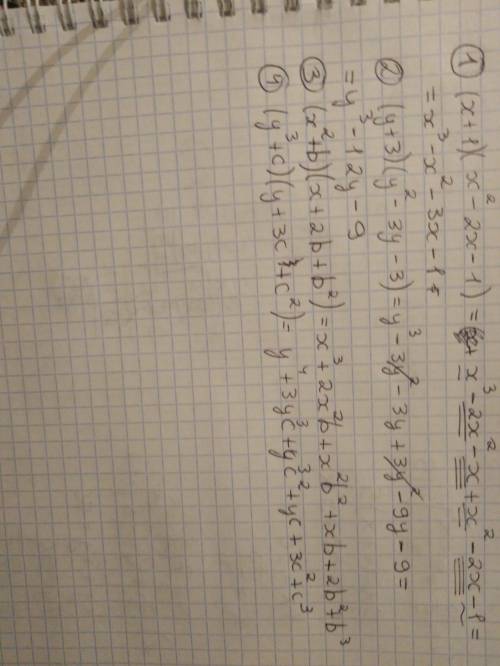 ① (x+1)(x² - 2x - 1) = x³ - 2x² - x + x² - 2x - 1 =
= x³ - x² - 3x - 1
② (y+3)(y² - 3y - 3) = y³ - 3y² - 3y + 3y² - 9y - 9 =
= y³ - 12y - 9
③ (x²+b)(x+2b+b²) = x³ + 2x²b + x²b² + xb + 2b² + b³
④ (y³+c)(y+3c+c²) = y⁴ + 3y³c + y³c² + yc + 3c² + c³